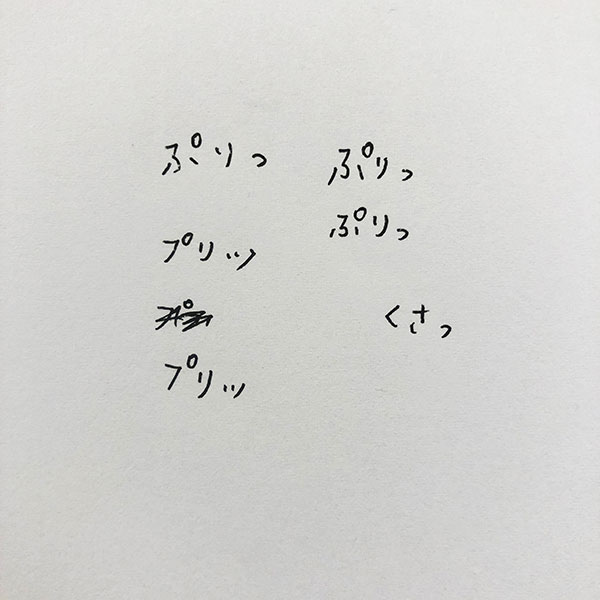 ぷりっ
プリッ
プリッ
ぷりっ
ぷりっ
くさっ